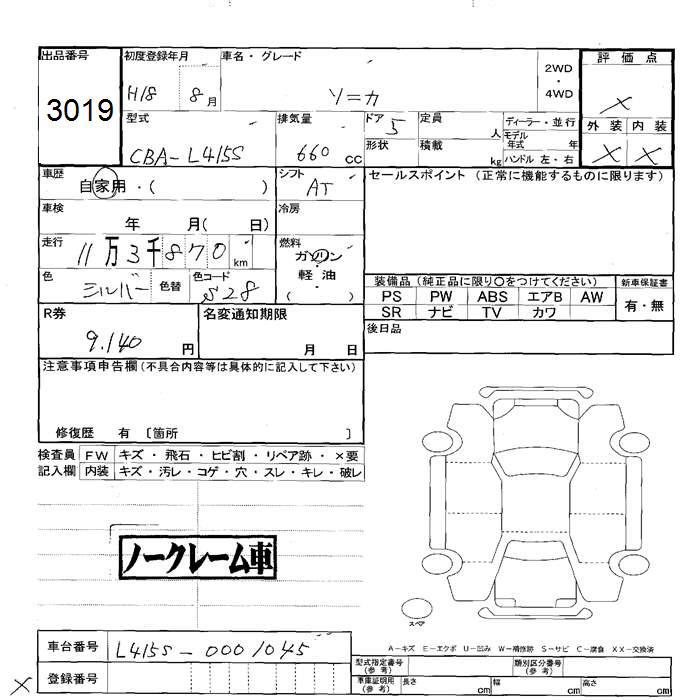 出品番号
3019
初度登録年月
H18 8月
車名・グレード
ソニカ
2WD
・
4WD
評価点
×
外装 内装
× ×
型式
CBA-L415S
排気量
660 cc
ドア 5
形状
定員 人
積載 kg
ディーラー・並行
モデル年式 年
ハンドル 左・右
車歴
自家用・( )
シフト
AT
車検
年 月( 日)
冷房
走行
11万3千870km
燃料
ガソリン
・
軽油
( )
色
シルバー
色替
色コード
S28
セールスポイント(正常に機能するものに限ります)
装備品(純正品に限り〇をつけてください)
PS PW ABS エアB AW
SR ナビ TV カワ
新車保証書
有・無
後日品
R券
9.140 円
名変通知期限
月 日
注意事項申告欄(不具合内容等は具体的に記入して下さい)
修復歴 有 〔箇所 〕
検査員記入欄
FW キズ・飛石・ヒビ割・リペア跡・×要
内装 キズ・汚レ・コゲ・穴・スレ・キレ・破レ
ノークレーム車
スペア
A-キズ E-エクボ U-凹み W-補修跡 S-サビ C-腐食 XX-交換済
車台番号 L415S-0001045
× 登録番号
型式指定番号(参考)
類別区分番号(参考)
車庫証明用(参考) 長さ cm 幅 cm 高さ cm